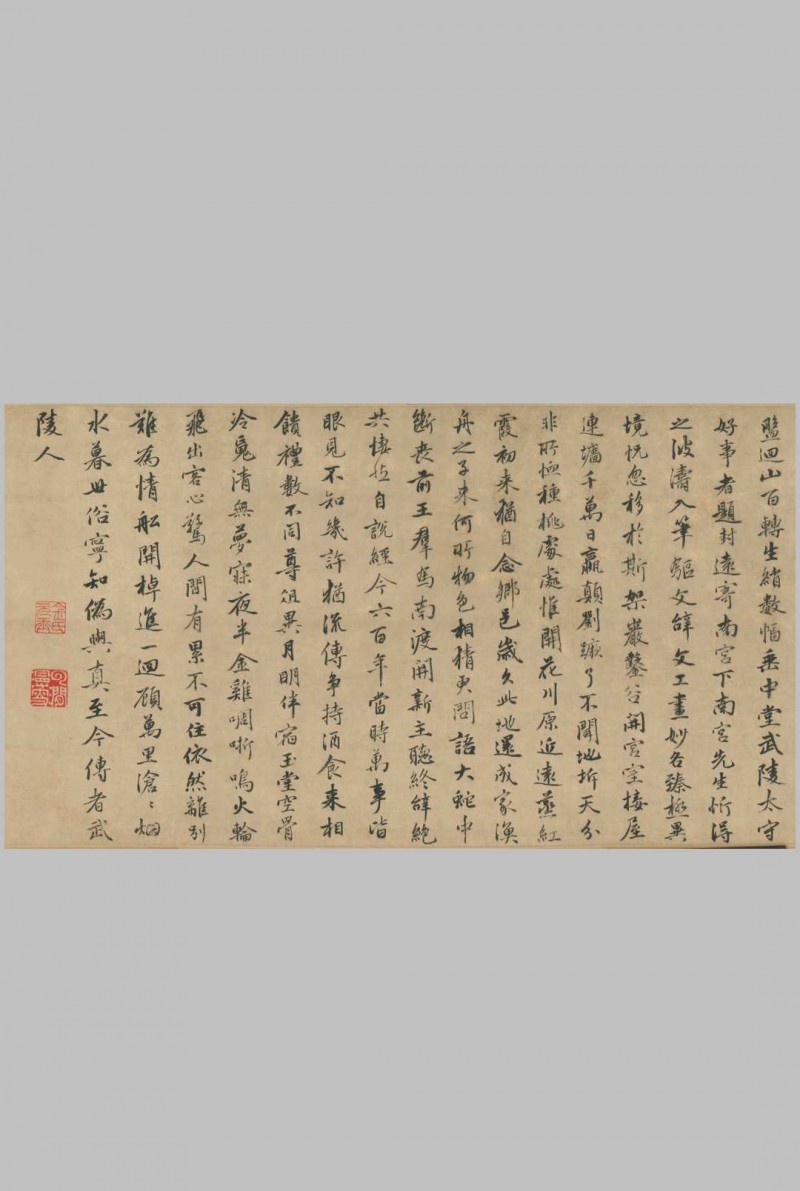 盤迴山百轉生綃數幅垂中堂武陵太守
好事者題封遠寄南宮下南宮先生忻得
之波濤入筆驅文辭文工畫妙各臻極異
境恍忽移於斯架巖鑿谷開宮室接屋
連墻千萬日嬴顛劉蹶了不聞地坼天分
非所恤種桃處處惟開花川原近遠蒸紅
霞初来猶自念鄉邑歲久此地還成家漁
舟之子来何所物色相猜更問語大蛇中
斷喪前王羣馬南渡開新主聽終辭絶
共悽然自説經今六百年當時萬事皆
眼見不知幾許猶流傳爭持酒食来相
饋禮數不同尊俎異月明伴宿玉堂空骨
冷魂清無夢寐夜半金雞啁哳鳴火輪
飛出客心驚人間有累不可住依然離別
難為情船開棹進一迴顧萬里滄〻烟
水暮世俗寧知偽與真至今傳者武
陵人